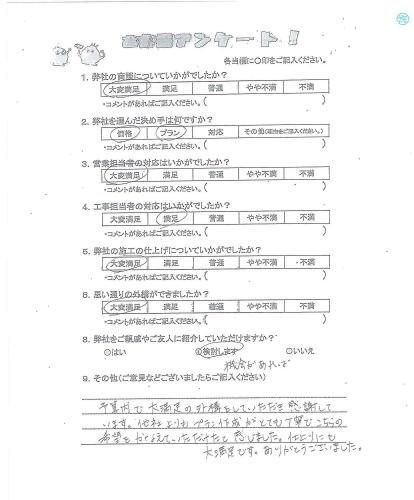 お客様アンケート!
各当欄に○印をご記入ください。
1. 弊社の商態についていかがでしたか?
大変満足 満足 普通 やや不満 不満
・コメントがあればご記入ください。( )
2. 弊社を選んだ決め手は何ですか?
価格 プラン 対応 その他(理由をご記入ください。)
・コメントがあればご記入ください。( )
3. 営業担当者の対応はいかがでしたか?
大変満足 満足 普通 やや不満 不満
・コメントがあればご記入ください。( )
4. 工事担当者の対応はいかがでしたか?
大変満足 満足 普通 やや不満 不満
・コメントがあればご記入ください。( )
5. 弊社の施工の仕上げについていかがでしたか?
大変満足 満足 普通 やや不満 不満
・コメントがあればご記入ください。( )
6. 思い通りの外構ができましたか?
大変満足 満足 普通 やや不満 不満
・コメントがあればご記入ください。( )
8. 弊社をご親戚やご友人に紹介していただけますか?
○はい ○検討します ○いいえ
機会があれば
9. その他(ご意見などございましたらご記入ください)
予算内で大満足の外構をしていただき感謝して
います。他社よりもプラン作成がとても丁寧でこちらの
希望もかなえていただけたと感じました。仕上りにも
大満足です。ありがとうございました。